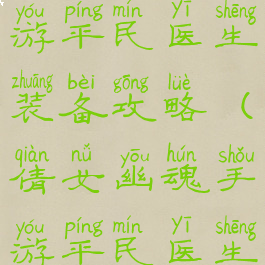 yóu píng mín yī shēng
游平民医生
zhuāng bèi gōng lüè
装备攻略（
qiàn nǚ yōu hún shǒu
倩女幽魂手
yóu píng mín yī shēng
游平民医生